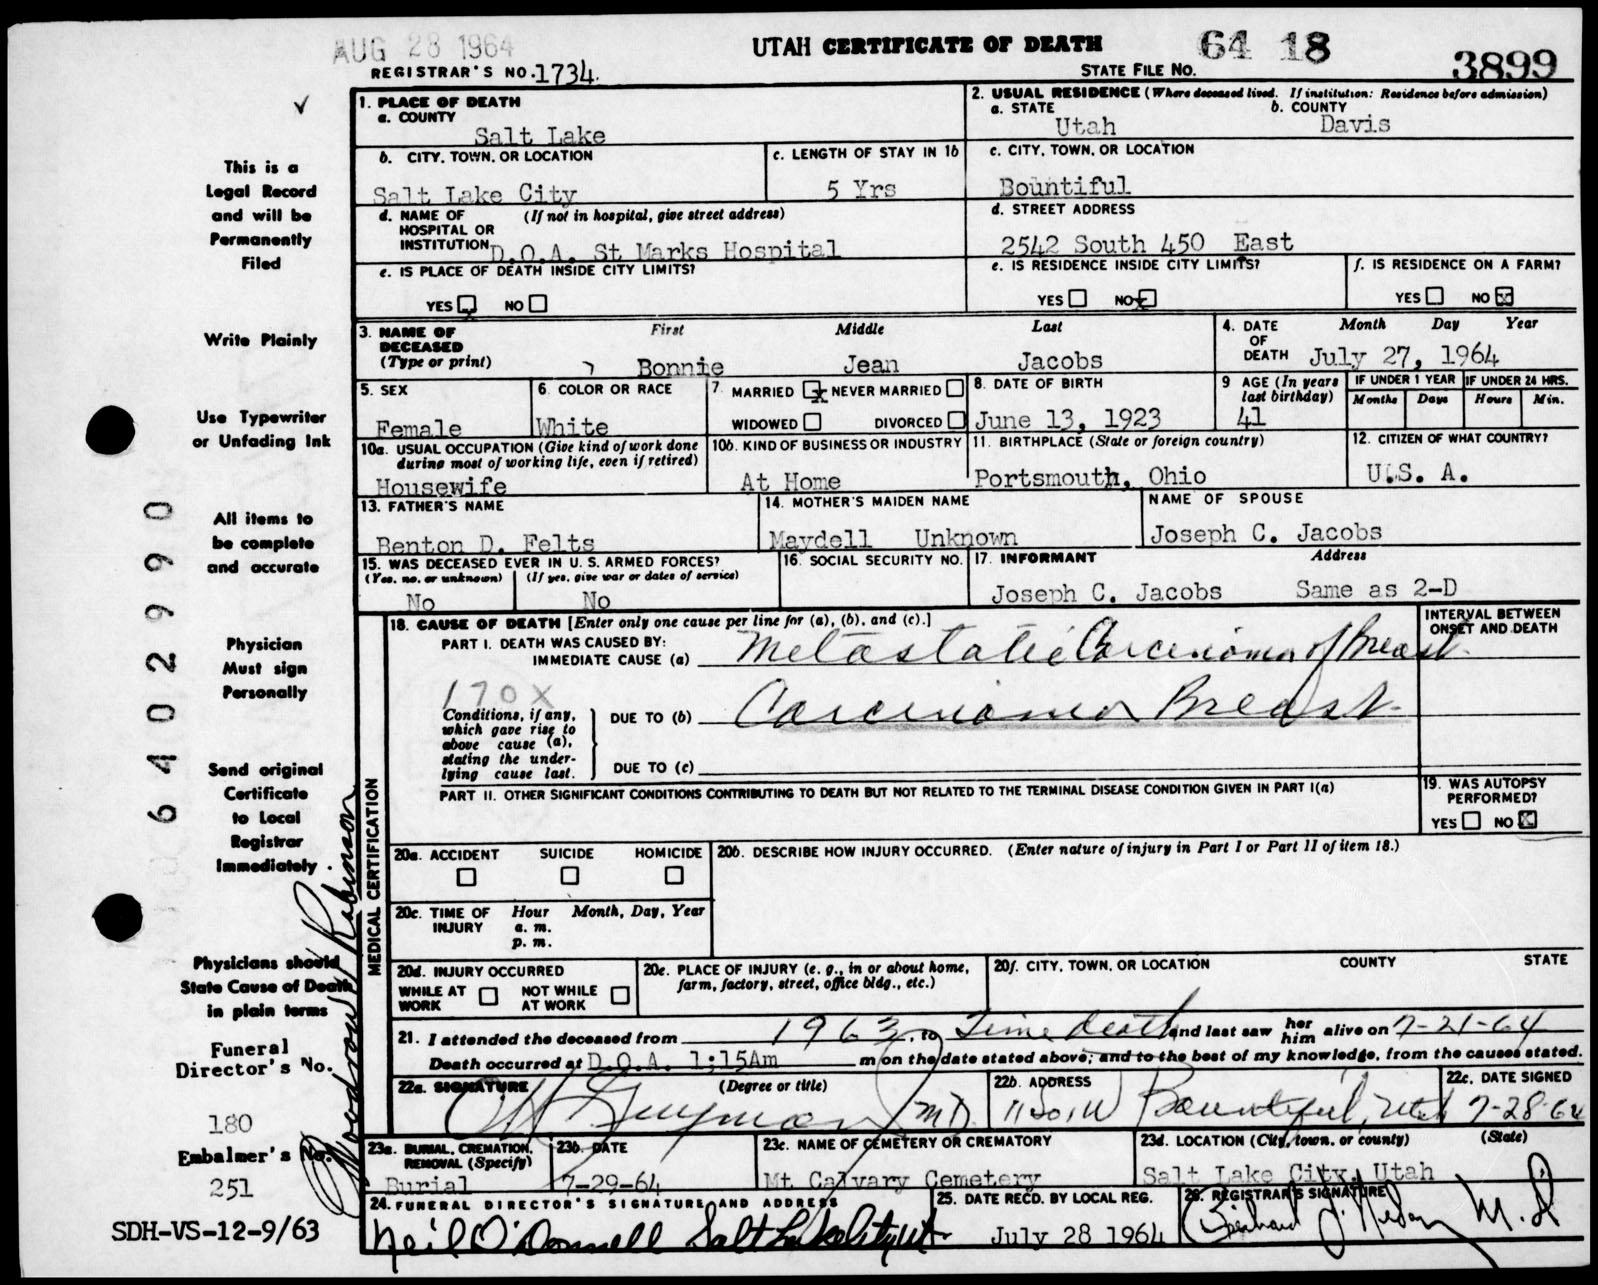 AUG 28 1964
UTAH CERTIFICATE OF DEATH 64 18
REGISTRAR'S NO. 1734. STATE FILE NO. 3899
1. PLACE OF DEATH
a. COUNTY
Salt Lake
2. USUAL RESIDENCE (Where deceased lived. If institution: Residence before admission)
a. STATE b. COUNTY
Utah Davis
b. CITY, TOWN, OR LOCATION
Salt Lake City
c. LENGTH OF STAY IN 1b
5 Yrs
c. CITY, TOWN, OR LOCATION
Bountiful
d. NAME OF HOSPITAL OR INSTITUTION (If not in hospital, give street address)
D.O.A. St Marks Hospital
d. STREET ADDRESS
2542 South 450 East
e. IS PLACE OF DEATH INSIDE CITY LIMITS?
YES x NO
e. IS RESIDENCE INSIDE CITY LIMITS?
YES NO x
f. IS RESIDENCE ON A FARM?
YES NO x
3. NAME OF DECEASED (Type or print)
First Middle Last
Bonnie Jean Jacobs
4. DATE OF DEATH
Month Day Year
July 27, 1964
5. SEX
Female
6. COLOR OR RACE
White
7. MARRIED x NEVER MARRIED
WIDOWED DIVORCED
8. DATE OF BIRTH
June 13, 1923
9 AGE (In years last birthday)
41
IF UNDER 1 YEAR IF UNDER 24 HRS.
Months Days Hours Min.
10a. USUAL OCCUPATION (Give kind of work done during most of working life, even if retired)
Housewife
10b. KIND OF BUSINESS OR INDUSTRY
At Home
11. BIRTHPLACE (State or foreign country)
Portsmouth, Ohio
12. CITIZEN OF WHAT COUNTRY?
U.S. A.
13. FATHER'S NAME
Benton D. Felts
14. MOTHER'S MAIDEN NAME
Maydell Unknown
NAME OF SPOUSE
Joseph C. Jacobs
15. WAS DECEASED EVER IN U. S. ARMED FORCES?
(Yes, no, or unknown) (If yes, give war or dates of service)
No No
16. SOCIAL SECURITY NO.
17. INFORMANT Address
Joseph C. Jacobs Same as 2-D
MEDICAL CERTIFICATION
18. CAUSE OF DEATH [Enter only one cause per line for (a), (b), and (c).]
INTERVAL BETWEEN ONSET AND DEATH
PART I. DEATH WAS CAUSED BY:
IMMEDIATE CAUSE (a) Metastatic Carcinoma of Breast
170X
Conditions, if any, which gave rise to above cause (a), stating the underlying cause last.
DUE TO (b) Carcinoma Breast
DUE TO (c)
PART II. OTHER SIGNIFICANT CONDITIONS CONTRIBUTING TO DEATH BUT NOT RELATED TO THE TERMINAL DISEASE CONDITION GIVEN IN PART I(a)
19. WAS AUTOPSY PERFORMED?
YES NO x
20a. ACCIDENT SUICIDE HOMICIDE
20b. DESCRIBE HOW INJURY OCCURRED. (Enter nature of injury in Part I or Part II of item 18.)
20c. TIME OF INJURY Hour Month, Day, Year
a. m.
p. m.
20d. INJURY OCCURRED
WHILE AT WORK NOT WHILE AT WORK
20e. PLACE OF INJURY (e. g., in or about home, farm, factory, street, office bldg., etc.)
20f. CITY, TOWN, OR LOCATION COUNTY STATE
21. I attended the deceased from 1963, to Time death and last saw her him alive on 7-21-64
Death occurred at D.O.A. 1:15Am m on the date stated above; and to the best of my knowledge, from the causes stated.
22a. SIGNATURE (Degree or title)
M D
22b. ADDRESS
Bountiful, Utah
22c. DATE SIGNED
7-28-64
23a. BURIAL, CREMATION, REMOVAL (Specify)
Burial
23b. DATE
7-29-64
23c. NAME OF CEMETERY OR CREMATORY
Mt Calvary Cemetery
23d. LOCATION (City, town, or county) (State)
Salt Lake City, Utah
24. FUNERAL DIRECTOR'S SIGNATURE AND ADDRESS
Neil O'Donnell Salt Lake City, Ut
25. DATE RECD. BY LOCAL REG.
July 28 1964
26. REGISTRAR'S SIGNATURE
M.D.
This is a
Legal Record
and will be
Permanently
Filed
Write Plainly
Use Typewriter
or Unfading Ink
All items to
be complete
and accurate
Physician
Must sign
Personally
Send original
Certificate
to Local
Registrar
Immediately.
Physicians should
State Cause of Death
in plain terms
Funeral
Director's No.
180
Embalmer's No.
251
SDH-VS-12-9/63
Woodrow Robinson
6402990